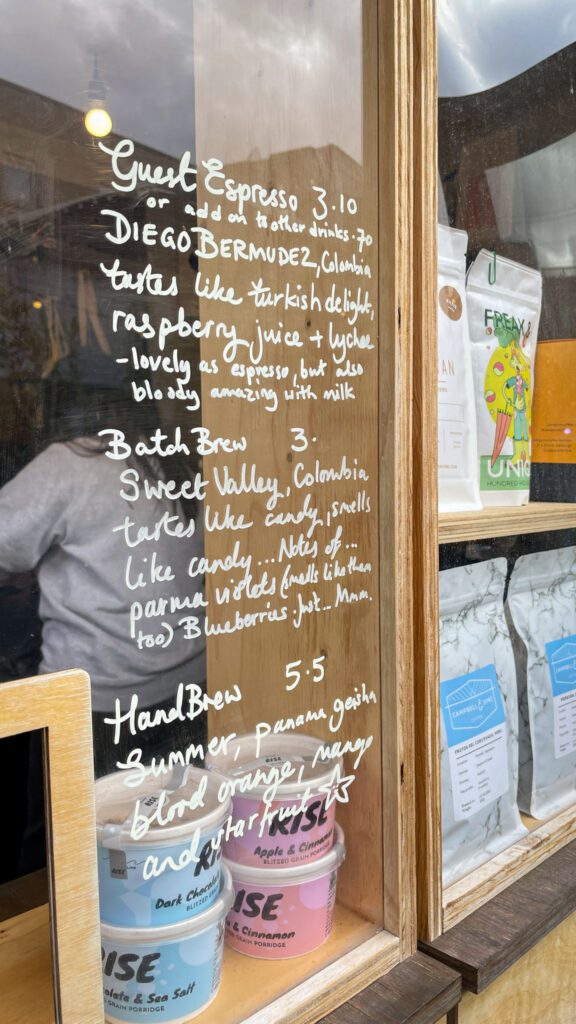 Guest Espresso 3.10
or add on to other drinks .70
DIEGO BERMUDEZ, Colombia
tastes like turkish delight,
raspberry juice + lychee
- lovely as espresso, but also
bloody amazing with milk
Batch Brew 3.
Sweet Valley, Colombia
tastes like candy, smells
like candy... Notes of ...
parma violets (smells like them
too) Blueberries. Just... Mmm.
Hand Brew 5.5
Summer, panama geisha
blood orange, mango
and starfruit
RISE
Dark Chocola
BLITZED GR
ISE
olate & Sea Salt
GRAIN PORRIDGE
RISE
Apple & Cinnamon
BLITZED GRAIN PORRIDGE
ISE
& Cinnamon
GRAIN PORRIDGE
FREAK &
UNIQ
HUNDRED HOUSE
AN
CAMPBELL & SYME
CAMPBELL